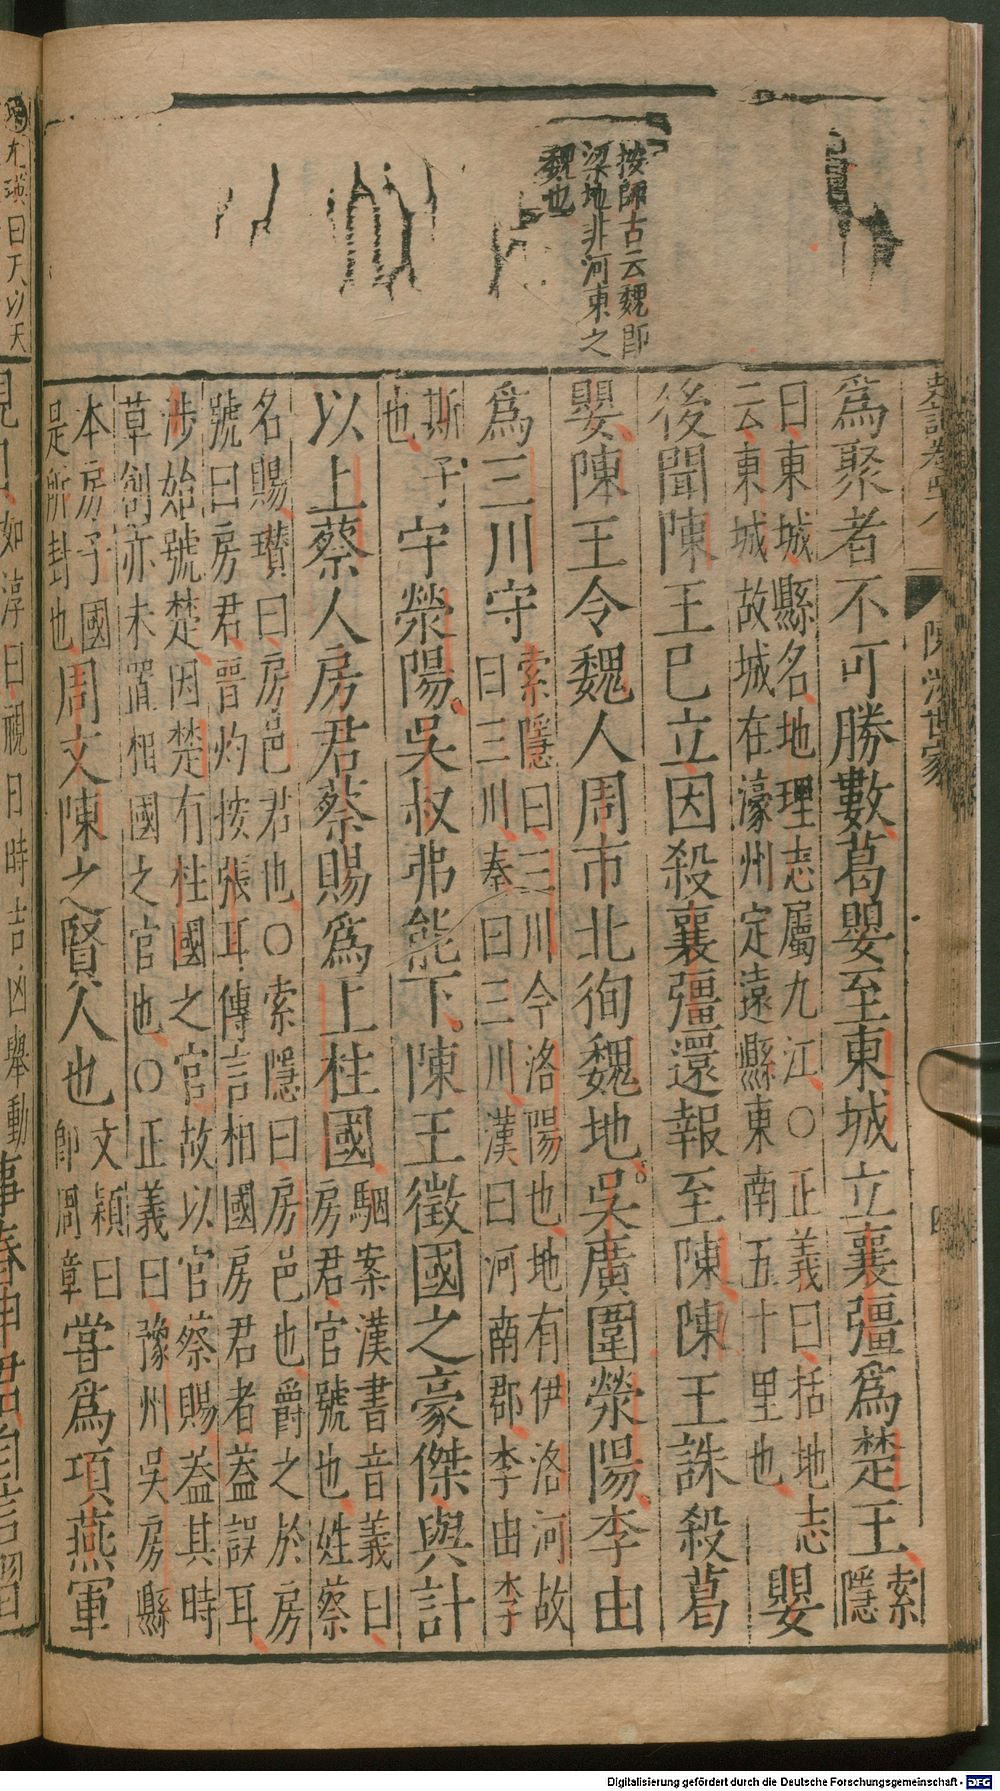 史記卷四十八
陳涉世家
四
按師古云魏即
梁地非河東之
魏也
爲聚者不可勝數葛嬰至東城立襄彊爲楚王索
隱
曰東城縣名地理志屬九江〇正義曰括地志
云東城故城在濠州定遠縣東南五十里也
嬰
後聞陳王已立因殺襄彊還報至陳陳王誅殺葛
嬰陳王令魏人周市北徇魏地吳廣圍滎陽李由
爲三川守
索隱曰三川今洛陽也地有伊洛河故
曰三川秦曰三川漢曰河南郡李由李
斯子
也
守滎陽吳叔弗能下陳王徵國之豪傑與計
以上蔡人房君蔡賜爲上柱國
駰案漢書音義曰
房君官號也姓蔡
名賜瓚曰房邑君也〇索隱曰房邑也爵之於房
號曰房君晉灼按張耳傳言相國房君者蓋誤耳
涉始號楚因楚有柱國之官故以官蔡賜蓋其時
草創亦未置相國之官也〇正義曰豫州吳房縣
本房子國
是所封也
周文陳之賢人也
文穎曰
即周章
嘗爲項燕軍
視日
如淳曰視日時吉凶舉動
事春申君
Digitalisierung gefördert durch die Deutsche Forschungsgemeinschaft - DFG